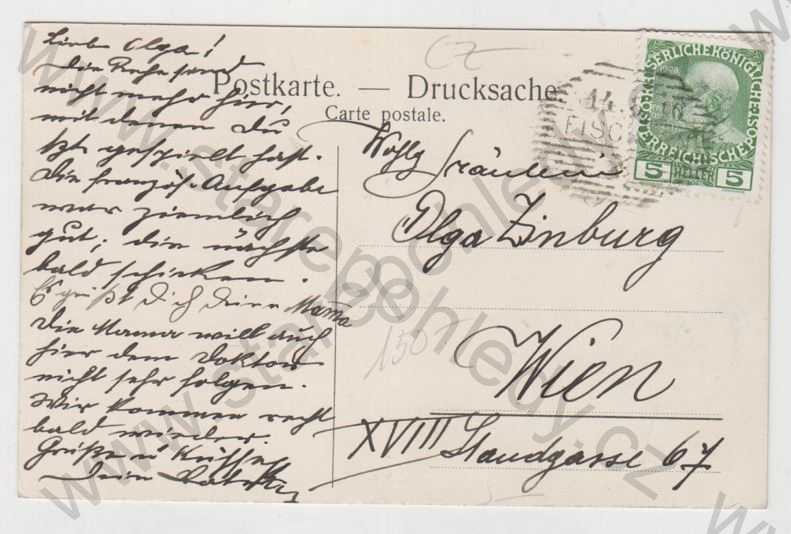 Liebe Olga!
Die Rehe sind
nicht mehr hier,
mit denen Du
gespielt hast.
Die französ. Aufgabe
war ziemlich
gut; die nächste
bald schicken.
Es grüßt Dich deine Mama
Die Mama will auch
hier dem Doktor
nicht sehr folgen.
Wir kommen recht
bald wieder.
Grüße u Küsse
Dein
Postkarte. — Drucksache
Carte postale.
14
FISC
KAISERLICHE KÖNIGLICHE ÖSTERREICHISCHE POST
5 HELLER 5
Wohlg Fräulein
Olga Zinburg
Wien
XVIII Staudgasse 67
150
www.starepohledy.cz